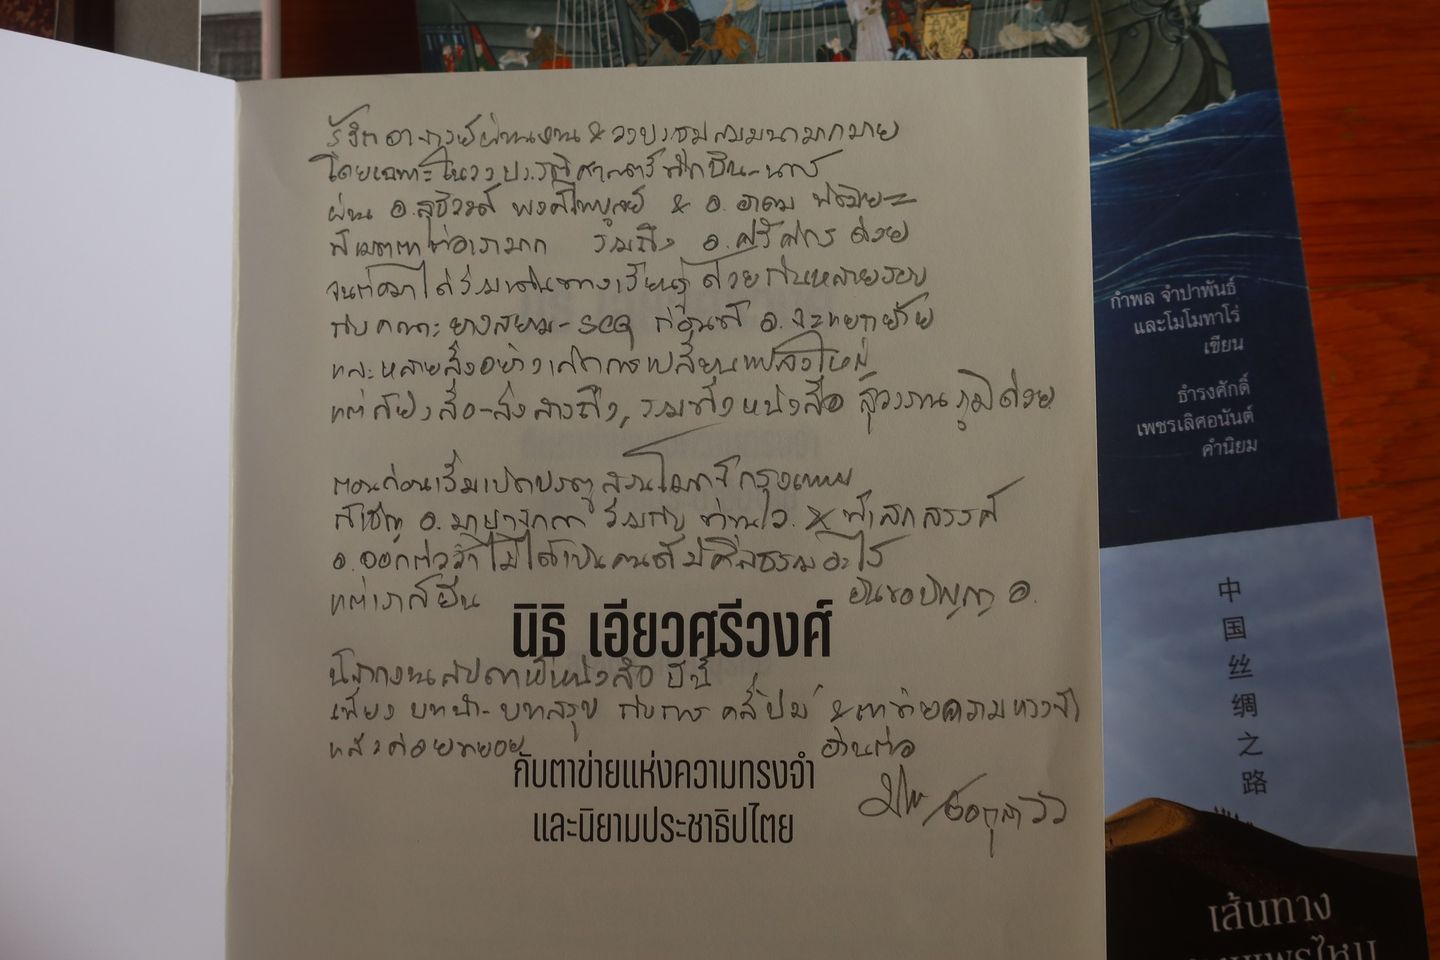 รู้จักอาจารย์ผ่านงาน & วงประชุมสัมมนามากมาย
โดยเฉพาะในวงประวัติศาสตร์ทักษิณ-
ผ่าน อ.สุธิวงศ์ พงศ์ไพบูลย์ & อ.
ที่เมตตาต่อเรามาก รวมถึง อ.ศรีศักร ด้วย
จนต่อมาได้ร่วมเดินทางเรียนรู้ด้วยกันหลายรอบ
กับคณะยางสยาม-SCG ก่อนที่ อ.จะ
และหลายสิ่งอย่างเกิดการเปลี่ยนแปลงใหม่
แต่ก็ยังสื่อ-ส่งสารถึง, รวมทั้งหนังสือ ด้วย
ตอนก่อนเริ่มเปิดประตูสวนโมกข์กรุงเทพ
ก็เชิญ อ.มา ร่วมกับ ท่าน ว. & พี่เสกสรรค์
อ.ออกตัวว่าไม่ได้เป็นคนที่มีศีลธรรมอะไร
แต่เราก็ยืน ยันขอปัญญา อ.
นิธิ เอียวศรีวงศ์
ปีนี้
เพียงบทนำ-บทสรุป กับการ & ตาข่ายความทรงจำ
แล้วค่อยทยอย อ่านต่อ
กับตาข่ายแห่งความทรงจำ
และนิยามประชาธิปไตย
กำพล จำปาพันธ์
และโมโมทาโร่
เขียน
ธำรงศักดิ์
เพชรเลิศอนันต์
คำนิยม
中国丝绸之路
เส้นทาง
แพรไหม